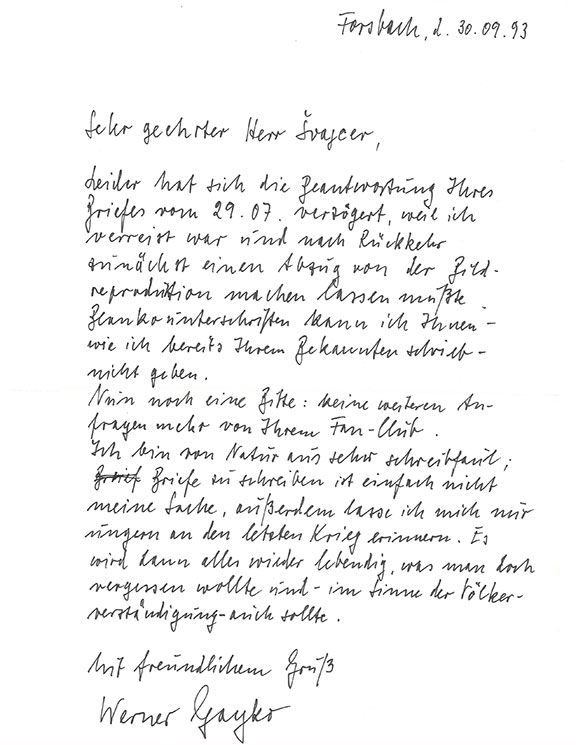 Forsbach, d. 30.09.93
Sehr geehrter Herr Švajcer,
Leider hat sich die Beantwortung Ihres
Briefes vom 29.07. verzögert, weil ich
verreist war und nach Rückkehr
zunächst einen Abzug von der Bild-
reproduktion machen lassen mußte.
Blankounterschriften kann ich Ihnen -
wie ich bereits Ihrem Bekannten schrieb -
nicht geben.
Nun noch eine Bitte: keine weiteren An-
fragen mehr von Ihrem Fan-Club.
Ich bin von Natur aus sehr schreibfaul;
Brief Briefe zu schreiben ist einfach nicht
meine Sache, außerdem lasse ich mich nur
ungern an den letzten Krieg erinnern. Es
wird dann alles wieder lebendig, was man doch
vergessen wollte und - im Sinne der Völker-
verständigung - auch sollte.
Mit freundlichem Gruß
Werner Gayko